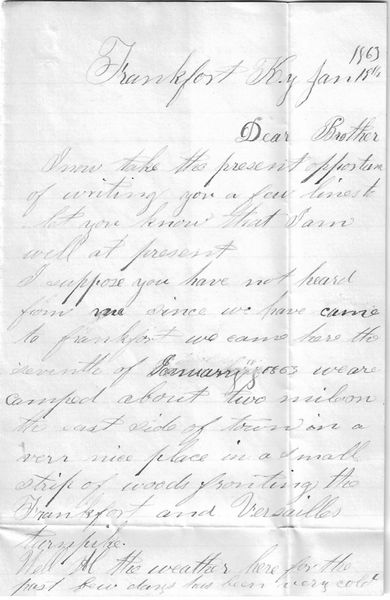 1863
Frankfort K.y Jan 15th
Dear Brother
I now take the present opportun
of writing you a few lines to
let you know that I am
well at present
I suppose you have not heard
from me since we have came
to frankfort we came here the
seventh of January 1863 we are
camped about two mils on
the east side of town in a
verr nice place in a small
strip of woods fronting the
Frankfort and Versailles
turnpike.
Well the weather here for the
past few days has been very cold